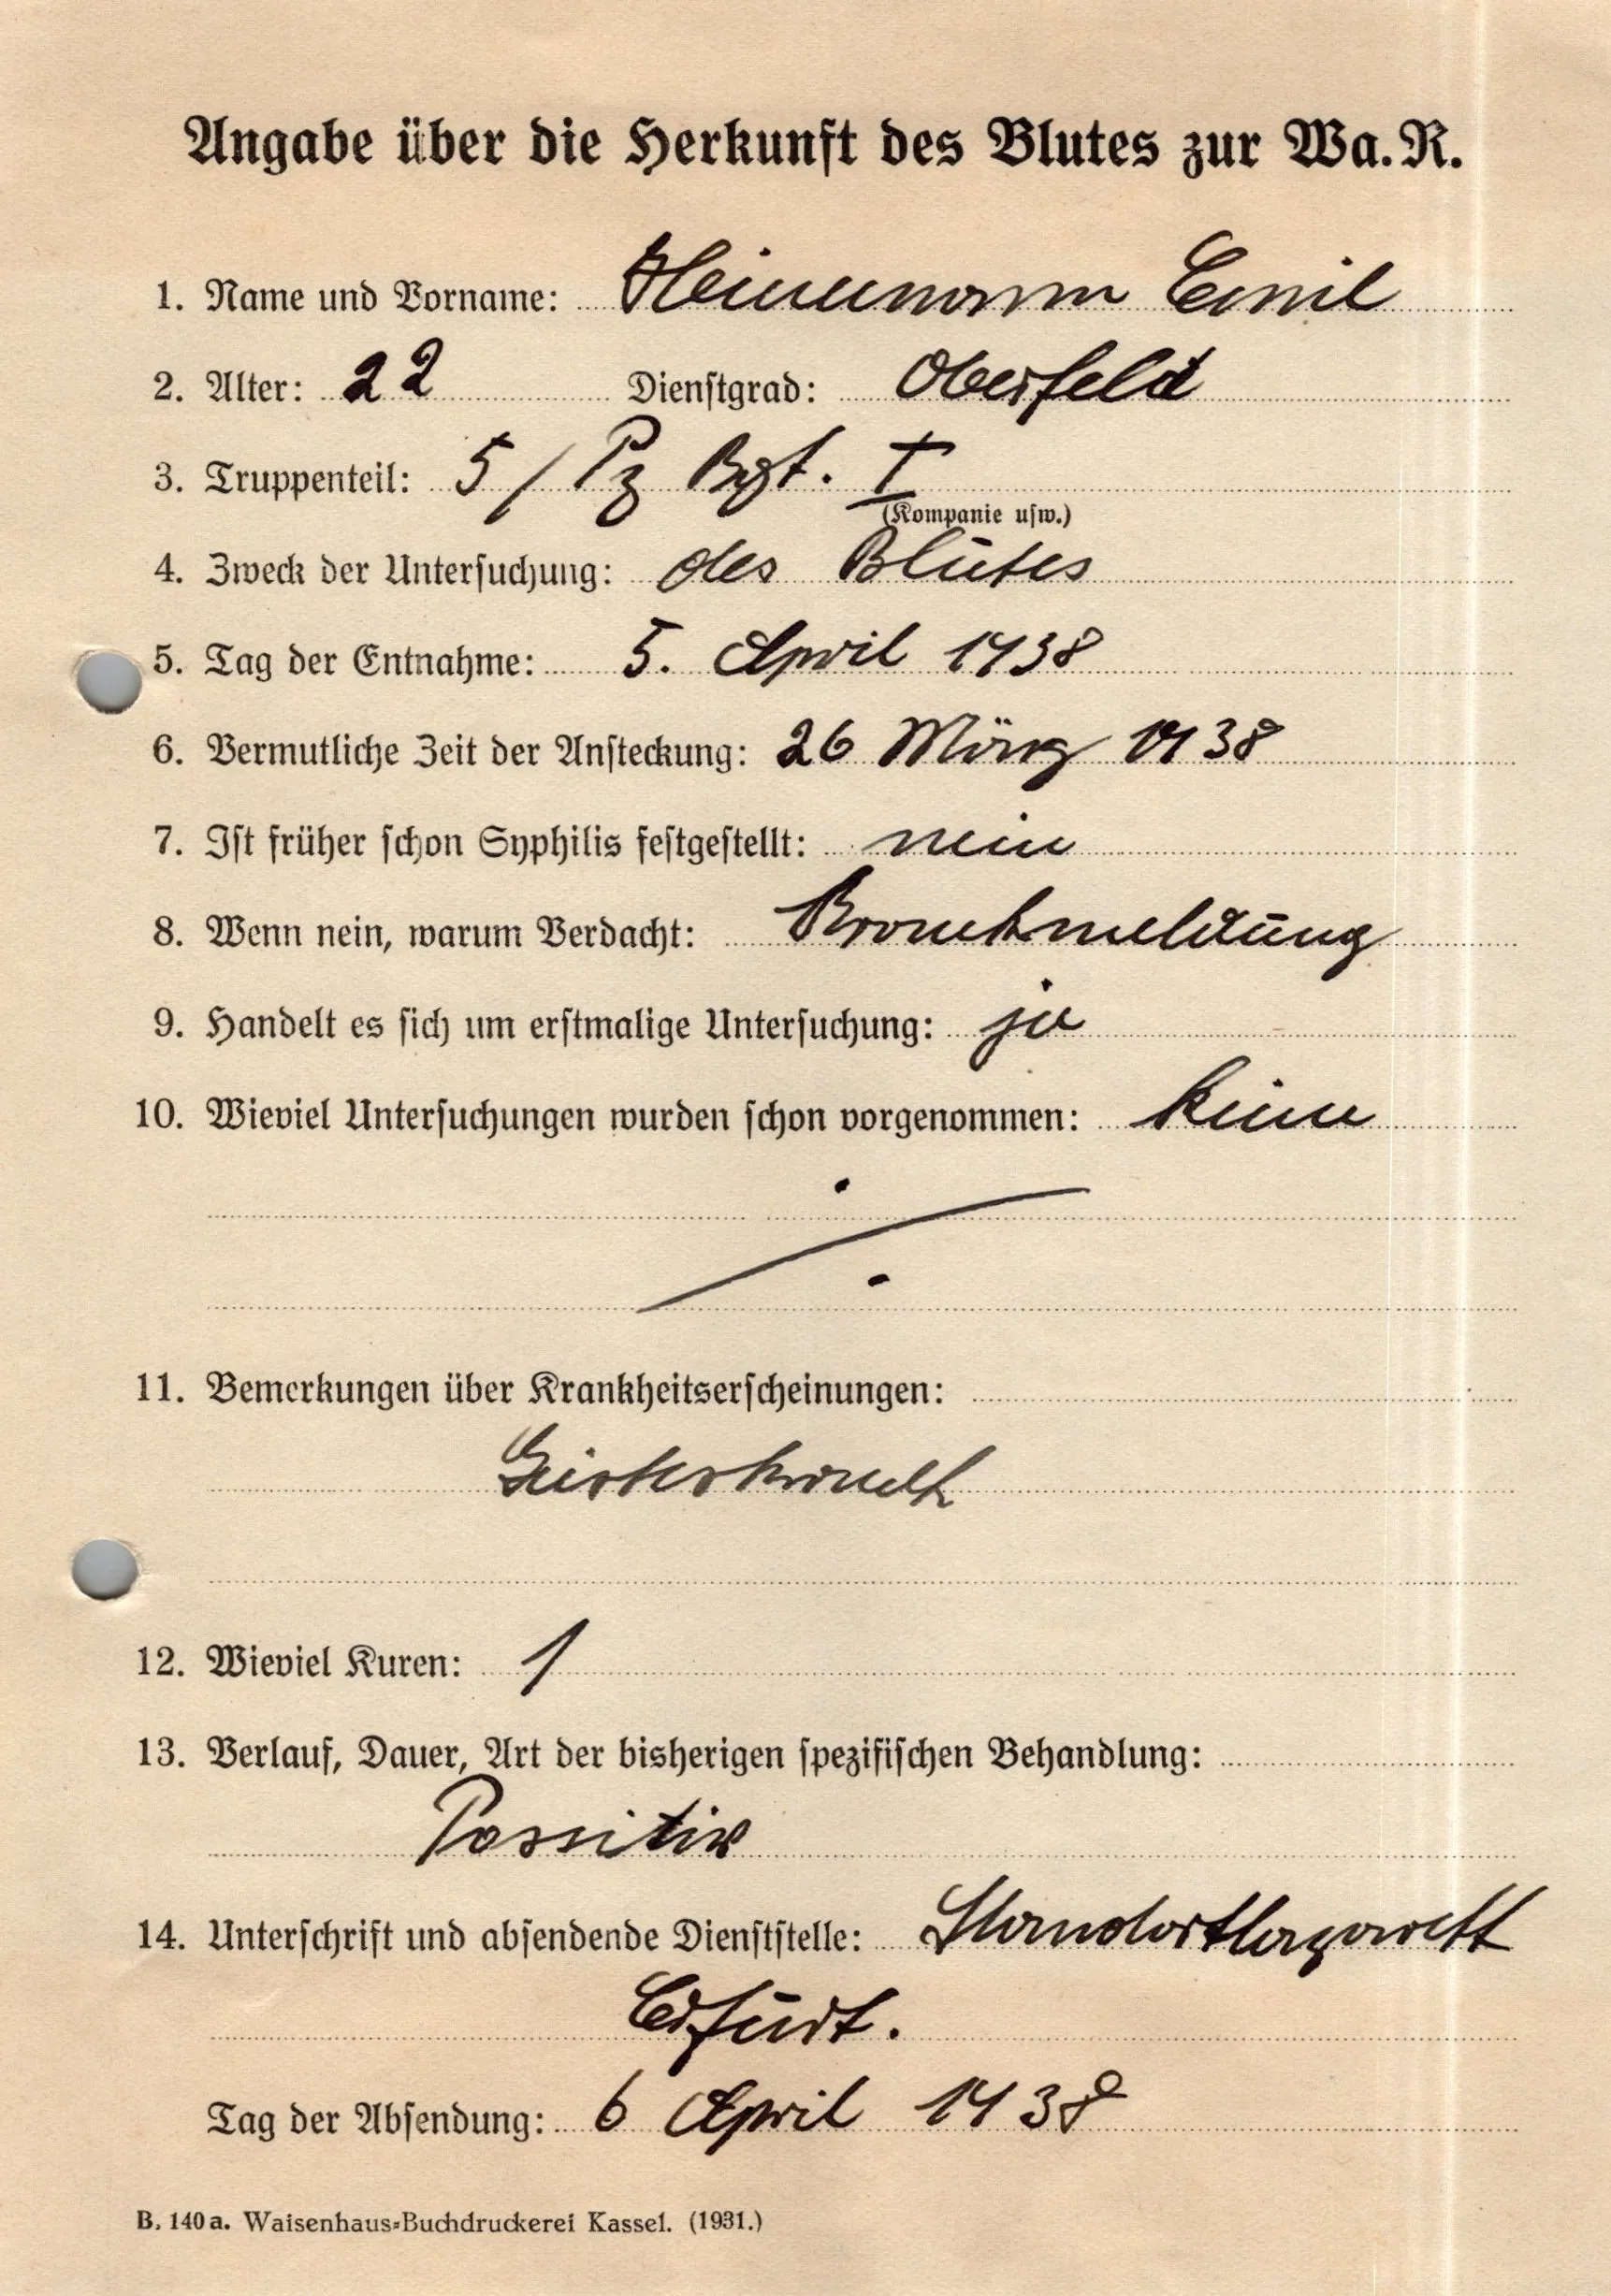 Angabe über die Herkunft des Blutes zur Wa. R.
1. Name und Vorname: Heinemann Emil
2. Alter: 22 Dienstgrad: Oberfeld
3. Truppenteil: 5 / Pz Rgt. I
(Kompanie usw.)
4. Zweck der Untersuchung: des Blutes
5. Tag der Entnahme: 5. April 1938
6. Vermutliche Zeit der Ansteckung: 26 März 1938
7. Ist früher schon Syphilis festgestellt: nein
8. Wenn nein, warum Verdacht: Krankmeldung
9. Handelt es sich um erstmalige Untersuchung: ja
10. Wieviel Untersuchungen wurden schon vorgenommen: keine
11. Bemerkungen über Krankheitserscheinungen:
12. Wieviel Kuren: 1
13. Verlauf, Dauer, Art der bisherigen spezifischen Behandlung:
Possitiv
14. Unterschrift und absendende Dienststelle: Standortlazarett
Erfurt.
Tag der Absendung: 6 April 1938
B. 140a. Waisenhaus-Buchdruckerei Kassel. (1931.)